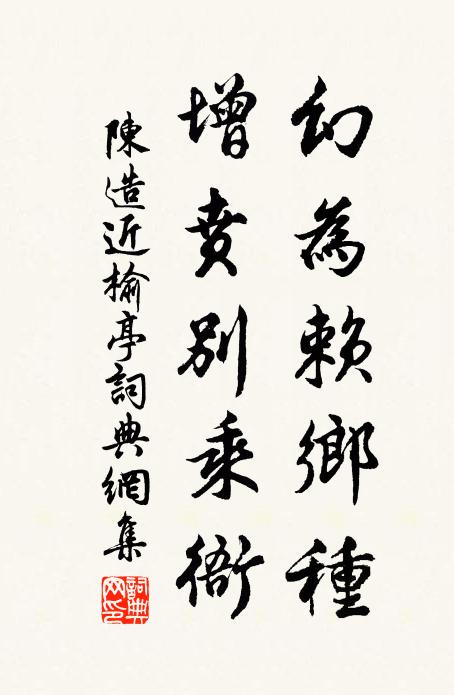 幻為賴鄉種
增賁別乘衙
陳造近榆亭詞典網集
詞典網印